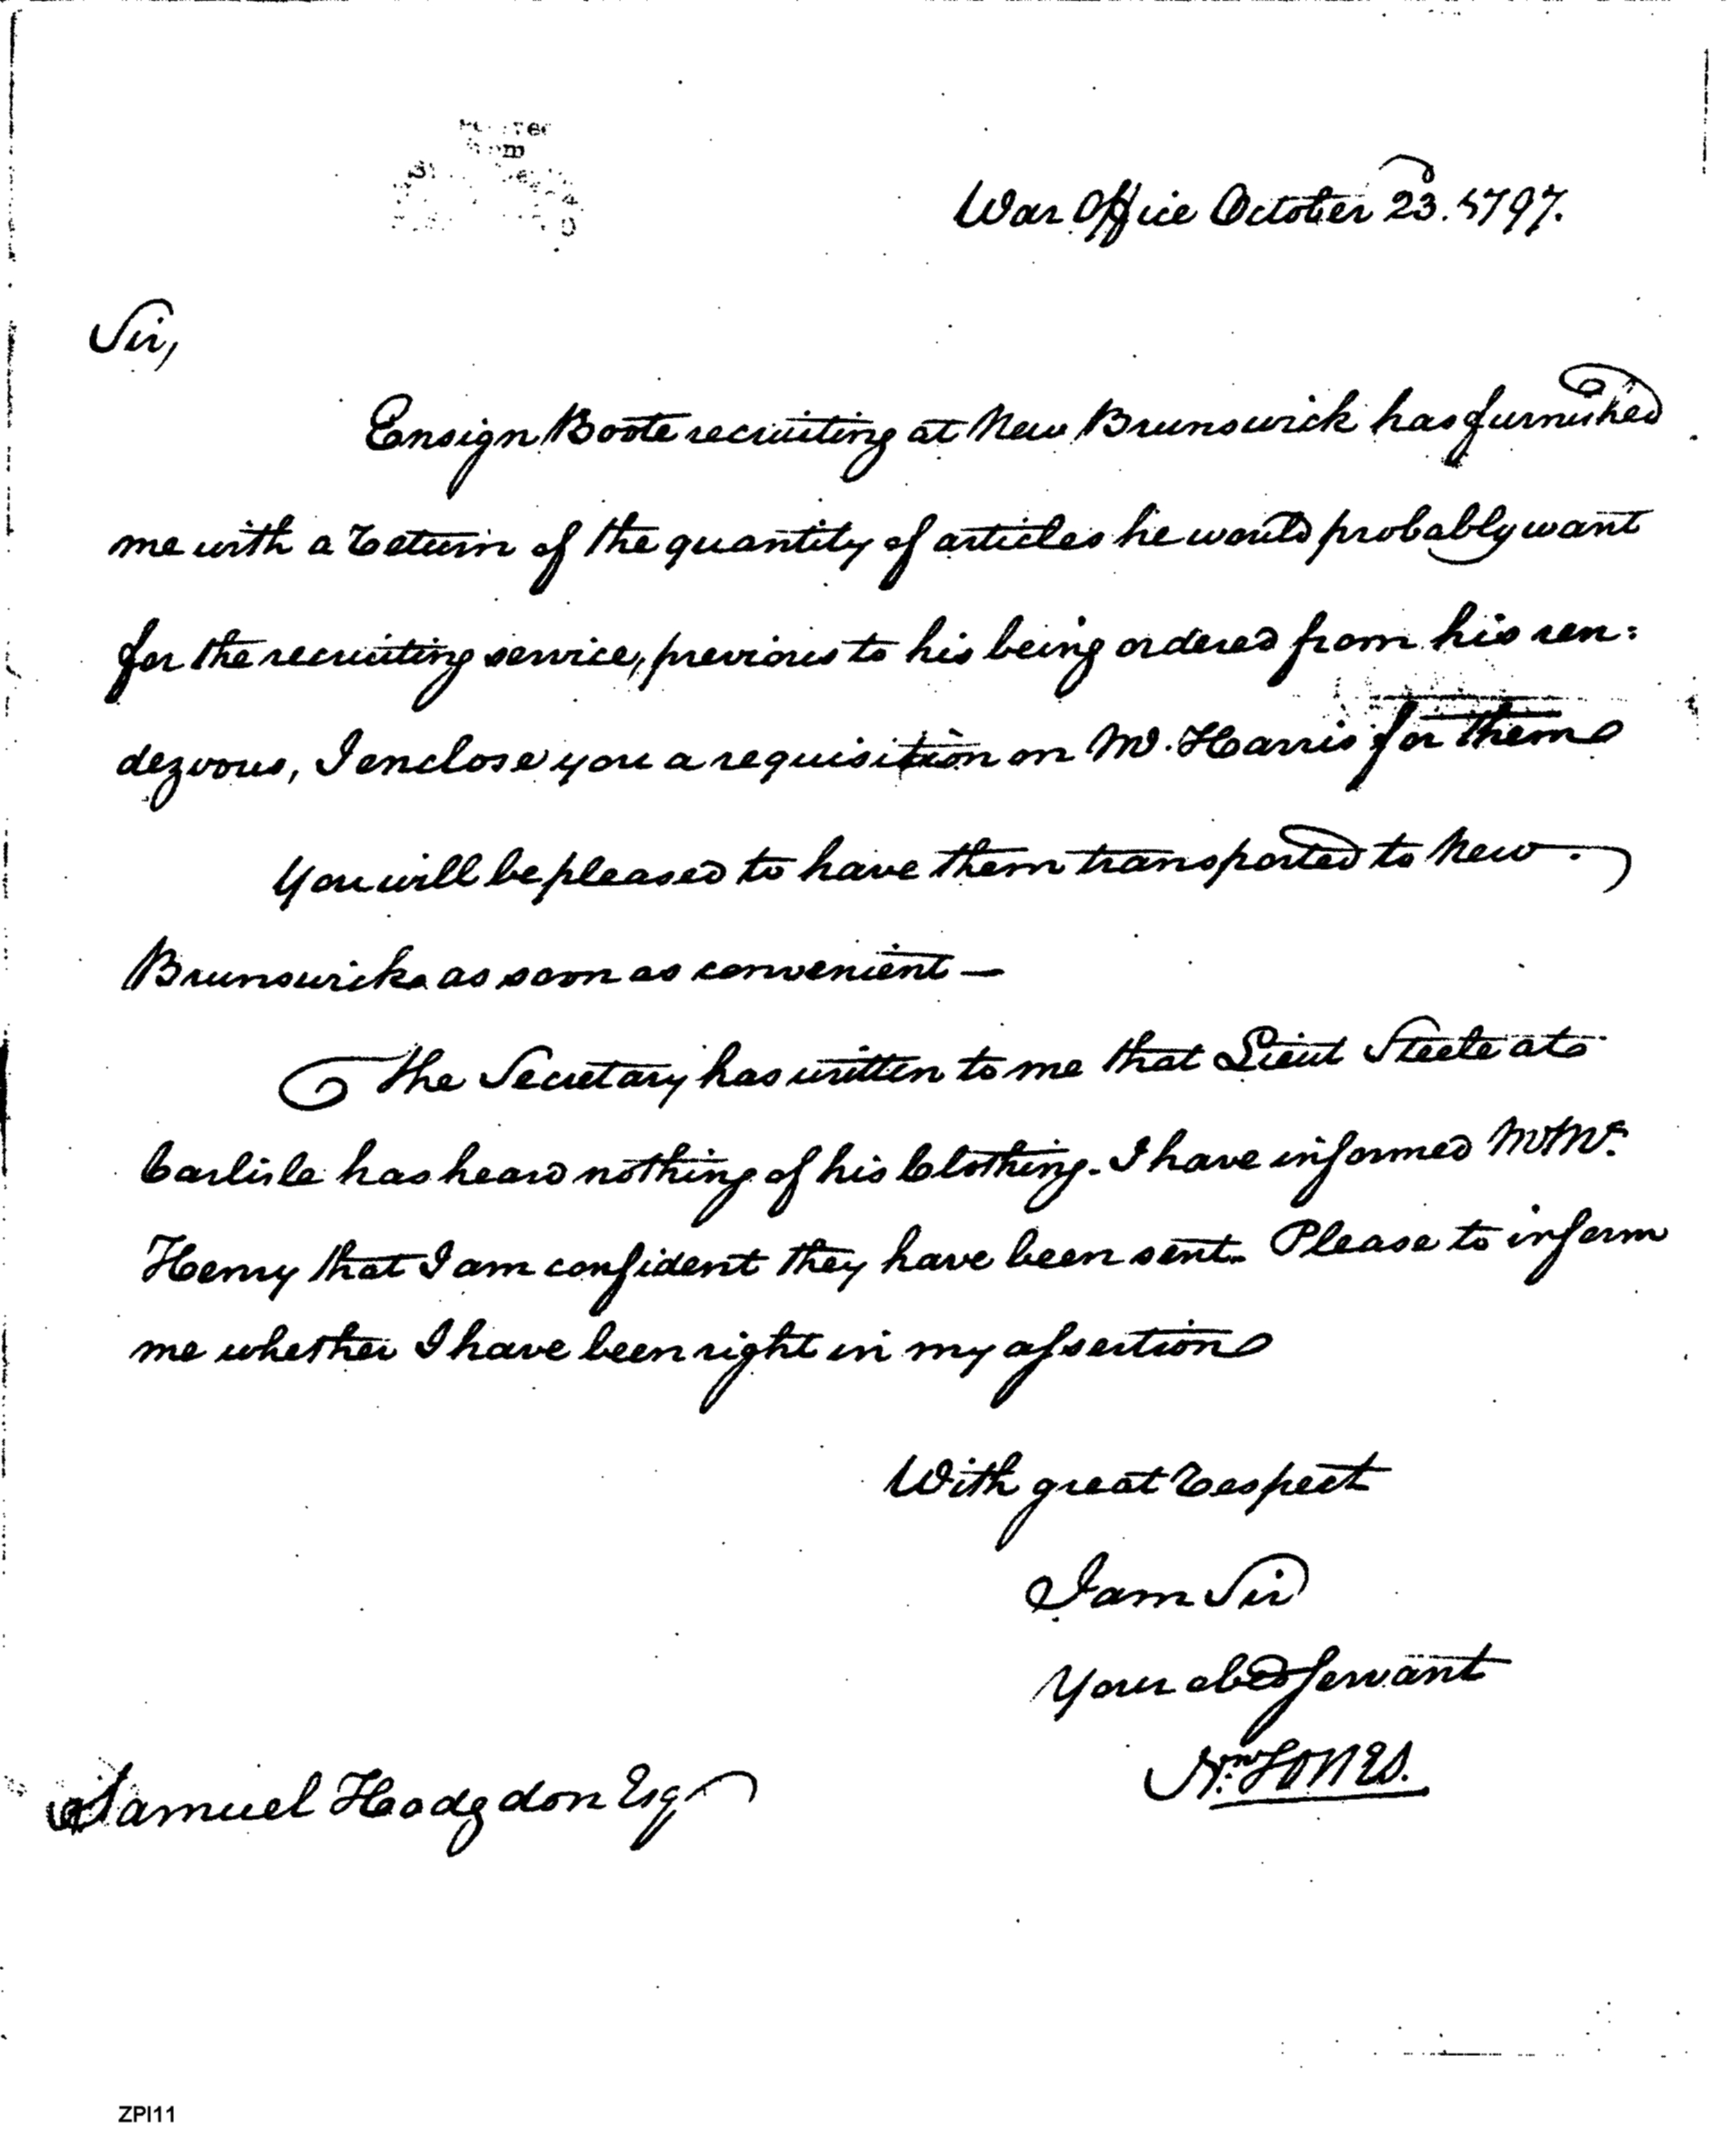 War Office October 23d. 1797.
Sir,
Ensign Boote recruiting at New Brunswick has furnished
me with a Return of the quantity of articles he would probably want
for the recruiting service, previous to his being ordered from his ren:
dezvous, I enclose you a requisition on Mr. Harris for them
You will be pleased to have them transported to New
Brunswick as soon as convenient —
The Secretary has written to me that Lieut Steele at
Carlisle has heard nothing of his Clothing. I have informed Mr Mc.
Henry that I am confident they have been sent. Please to inform
me whether I have been right in my assertion
With great Respect
I am Sir
Your obed servant
Nn. Jones.
Samuel Hodgdon Esqr
ZPI11